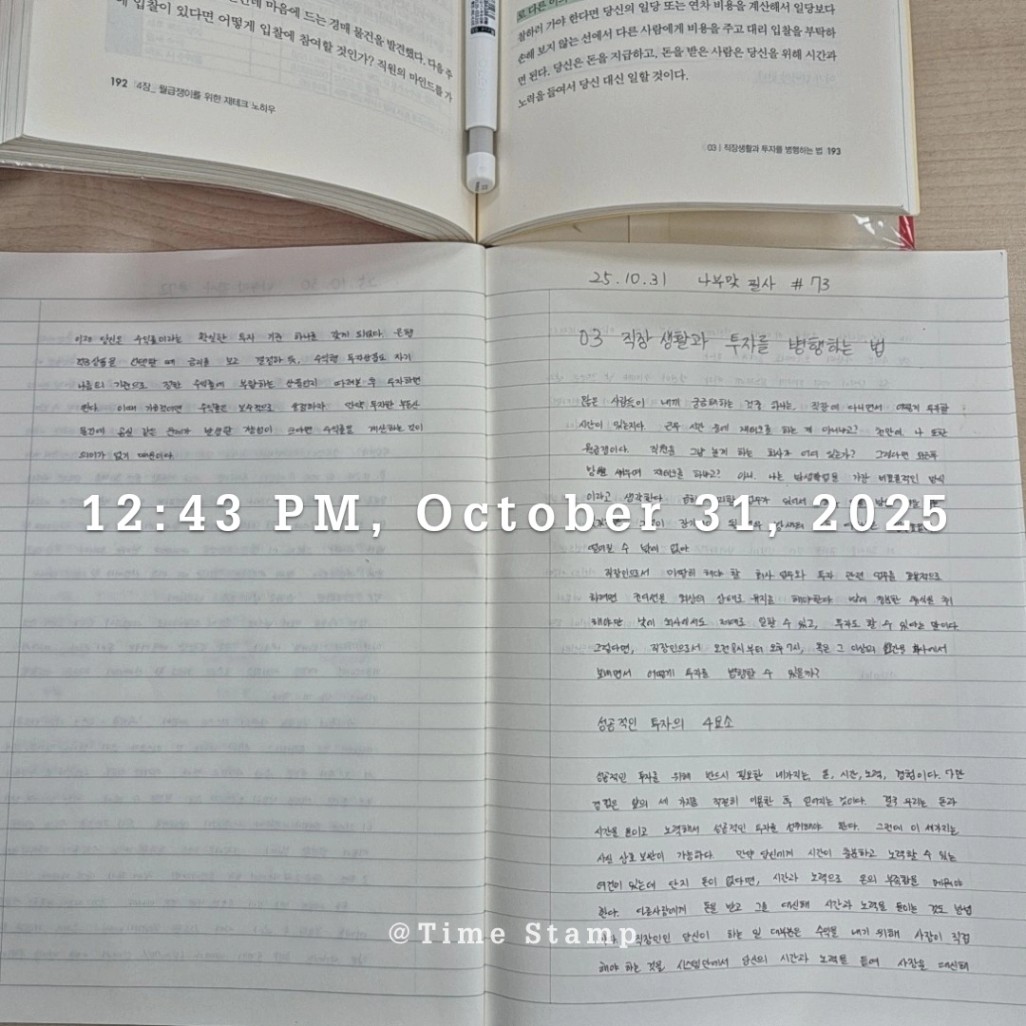 에 입찰이 있다면 어떻게 입찰에 참여할 것인가? 직원의 마인드를 가
192 4장_ 월급쟁이를 위한 재테크 노하우
찰하러 가야 한다면 당신의 일당 또는 연차 비용을 계산해서 일당보다
손해 보지 않는 선에서 다른 사람에게 비용을 주고 대리 입찰을 부탁하
면 된다. 당신은 돈을 지급하고, 돈을 받은 사람은 당신을 위해 시간과
노력을 들여서 당신 대신 일할 것이다.
03 | 직장생활과 투자를 병행하는 법 193
이제 당신은 수익률이라는 확실한 투자 기준 하나를 갖게 되었다. 은행
예금상품을 선택할 때 금리를 보고 결정하듯, 수익형 부동산도 자기
나름의 기준으로 정한 수익률에 부합하는 상품인지 따져본 후 투자하면
된다. 이때 가능하면 수익률은 보수적으로 계산하자. 만약 투자한 부동산
물건에 공실 같은 문제가 발생할 가능성이 크다면 수익률을 계산하는 것이
의미가 없기 때문이다.
25.10.31 나부맞 필사 #73
03 직장 생활과 투자를 병행하는 법
많은 사람들이 내게 궁금해하는 것중 하나는, 직장에 다니면서 어떻게 투자할
시간이 있는지다. 근무 시간 중에 재테크를 하는 게 아니냐고? 천만에. 나 또한
월급쟁이다. 직원을 그냥 놀게 하는 회사가 어디 있는가? 그렇다면 퇴근후
밤을 새우며 재테크를 하냐고? 아니. 나는 밤샘작업을 가장 비효율적인 방식
이라고 생각한다.
12:43 PM, October 31, 2025
떨어질 수 밖에 없다
직장인으로서 마땅히 해야 할 회사 업무와 투자 관련 업무를 효율적으로
하려면 컨디션을 최상의 상태로 유지를 해야한다 밤에 충분한 휴식을 취
해야만 낮에 회사에서도 제대로 일할 수 있고, 투자도 할 수 있다는 말이다
그렇다면, 직장인으로서 오전 8시부터 오후 7시, 혹은 그 이상의 시간을 회사에서
보내면서 어떻게 투자를 병행할 수 있을까?
성공적인 투자의 4요소
성공적인 투자를 위해 반드시 필요한 네가지는, 돈, 시간, 노력, 경험이다. 그중
경험은 앞의 세 가지를 적절히 이용한 후 얻어지는 것이다. 결국 우리는 돈과
시간을 들이고 노력해서 성공적인 투자를 성취해야 한다. 그런데 이 세가지는
사실 상호 보완이 가능하다 만약 당신에게 시간이 충분하고 노력할 수 있는
여건이 있는데 단지 돈이 없다면, 시간과 노력으로 돈의 부족함을 메꿔야
한다. 다른사람에게 돈을 받고 그를 대신해 시간과 노력을 들이는 것도 방법
@Time Stamp
직장인인 당신이 하는 일 대부분은 수익을 내기 위해 사장이 직접
해야 하는 것을 시스템안에서 당신의 시간과 노력을 들여 사장을 대신해